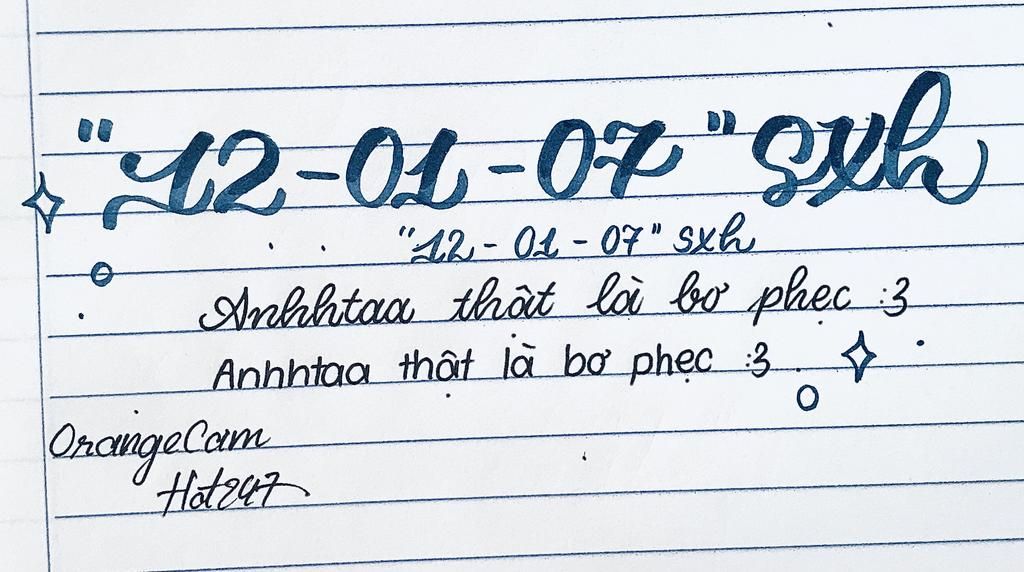 "12-01-07" sxh
"12-01-07" sxh
Anhhtaa thật là bơ phẹc :3
Anhhtaa thật là bơ phẹc :3
OrangeCam
Hot247